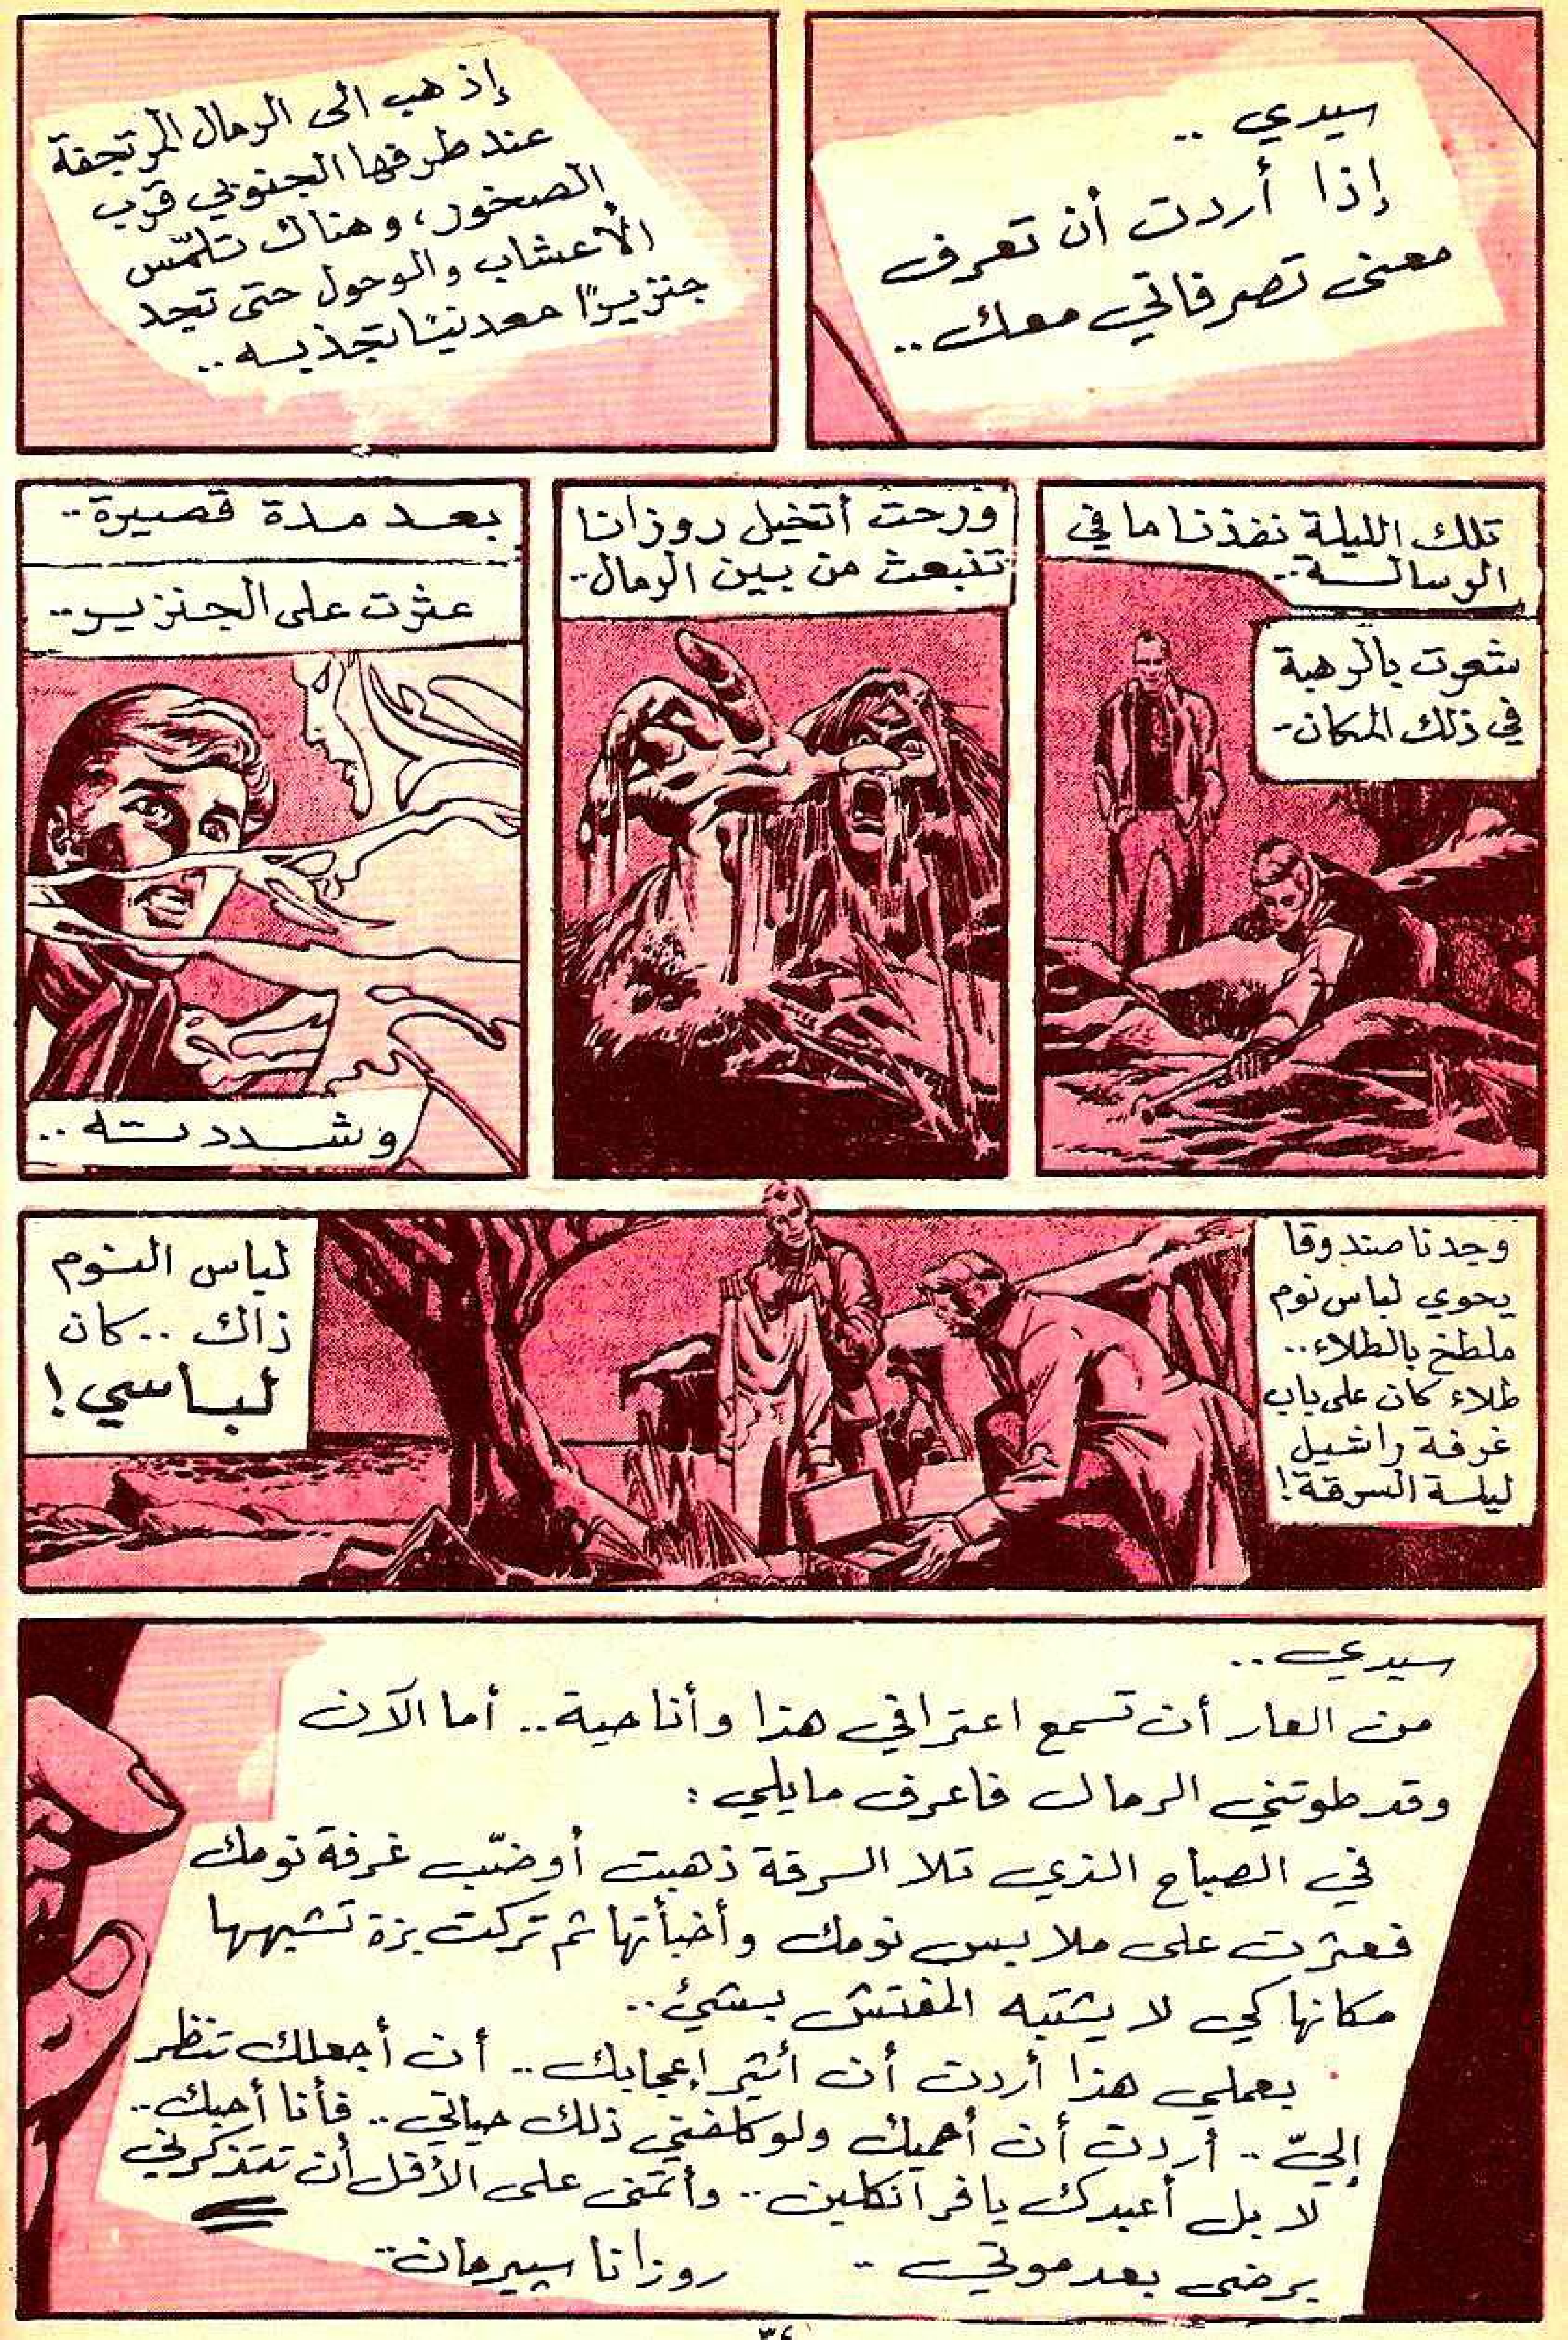 سيدي ..
إذا أردت أن تعرف
معنى تصرفاتي معك ..
إذهب الى الرمال المرتجفة
عند طرفها الجنوبي قرب
الصخور، وهناك تلمّس
الأعشاب والوحول حتى تجد
جنزيرًا معدنيًا تجذبه ..
تلك الليلة نفذنا ما في
الرسالة ..
شعرت بالرهبة
في ذلك المكان -
ورحت أتخيل روزانا
تنبعث من بين الرمال ..
بعد مدة قصيرة ..
عثرت على الجنزير ..
وشددته ..
وجدنا صندوقا
يحوي لباس نوم
ملطخ بالطلاء ..
طلاء كان على باب
غرفة راشيل
ليلة السرقة !
لباس النوم
ذاك .. كان
لباسي !
سيدي ..
من العار أن تسمع اعترافي هذا وأنا حية .. أما الآن
وقد طوتني الرمال فاعرف مايلي :
في الصباح الذي تلا السرقة ذهبت أوضّب غرفة نومك
فعثرت على ملابس نومك وأخبأتها ثم تركت بزة تشبهها
مكانها كي لا يشتبه المفتش بشيئ ..
بعملي هذا أردت أن أثير إعجابك .. أن أجعلك تنظر
إليّ .. أردت أن أحميك ولو كلفني ذلك حياتي .. فأنا أحبك ..
لا بل أعبدك يا فرانكلين .. وأتمنى على الأقل أن تتذكرني
برضى بعد موتي .. روزانا سبيرمان ..
٣٤